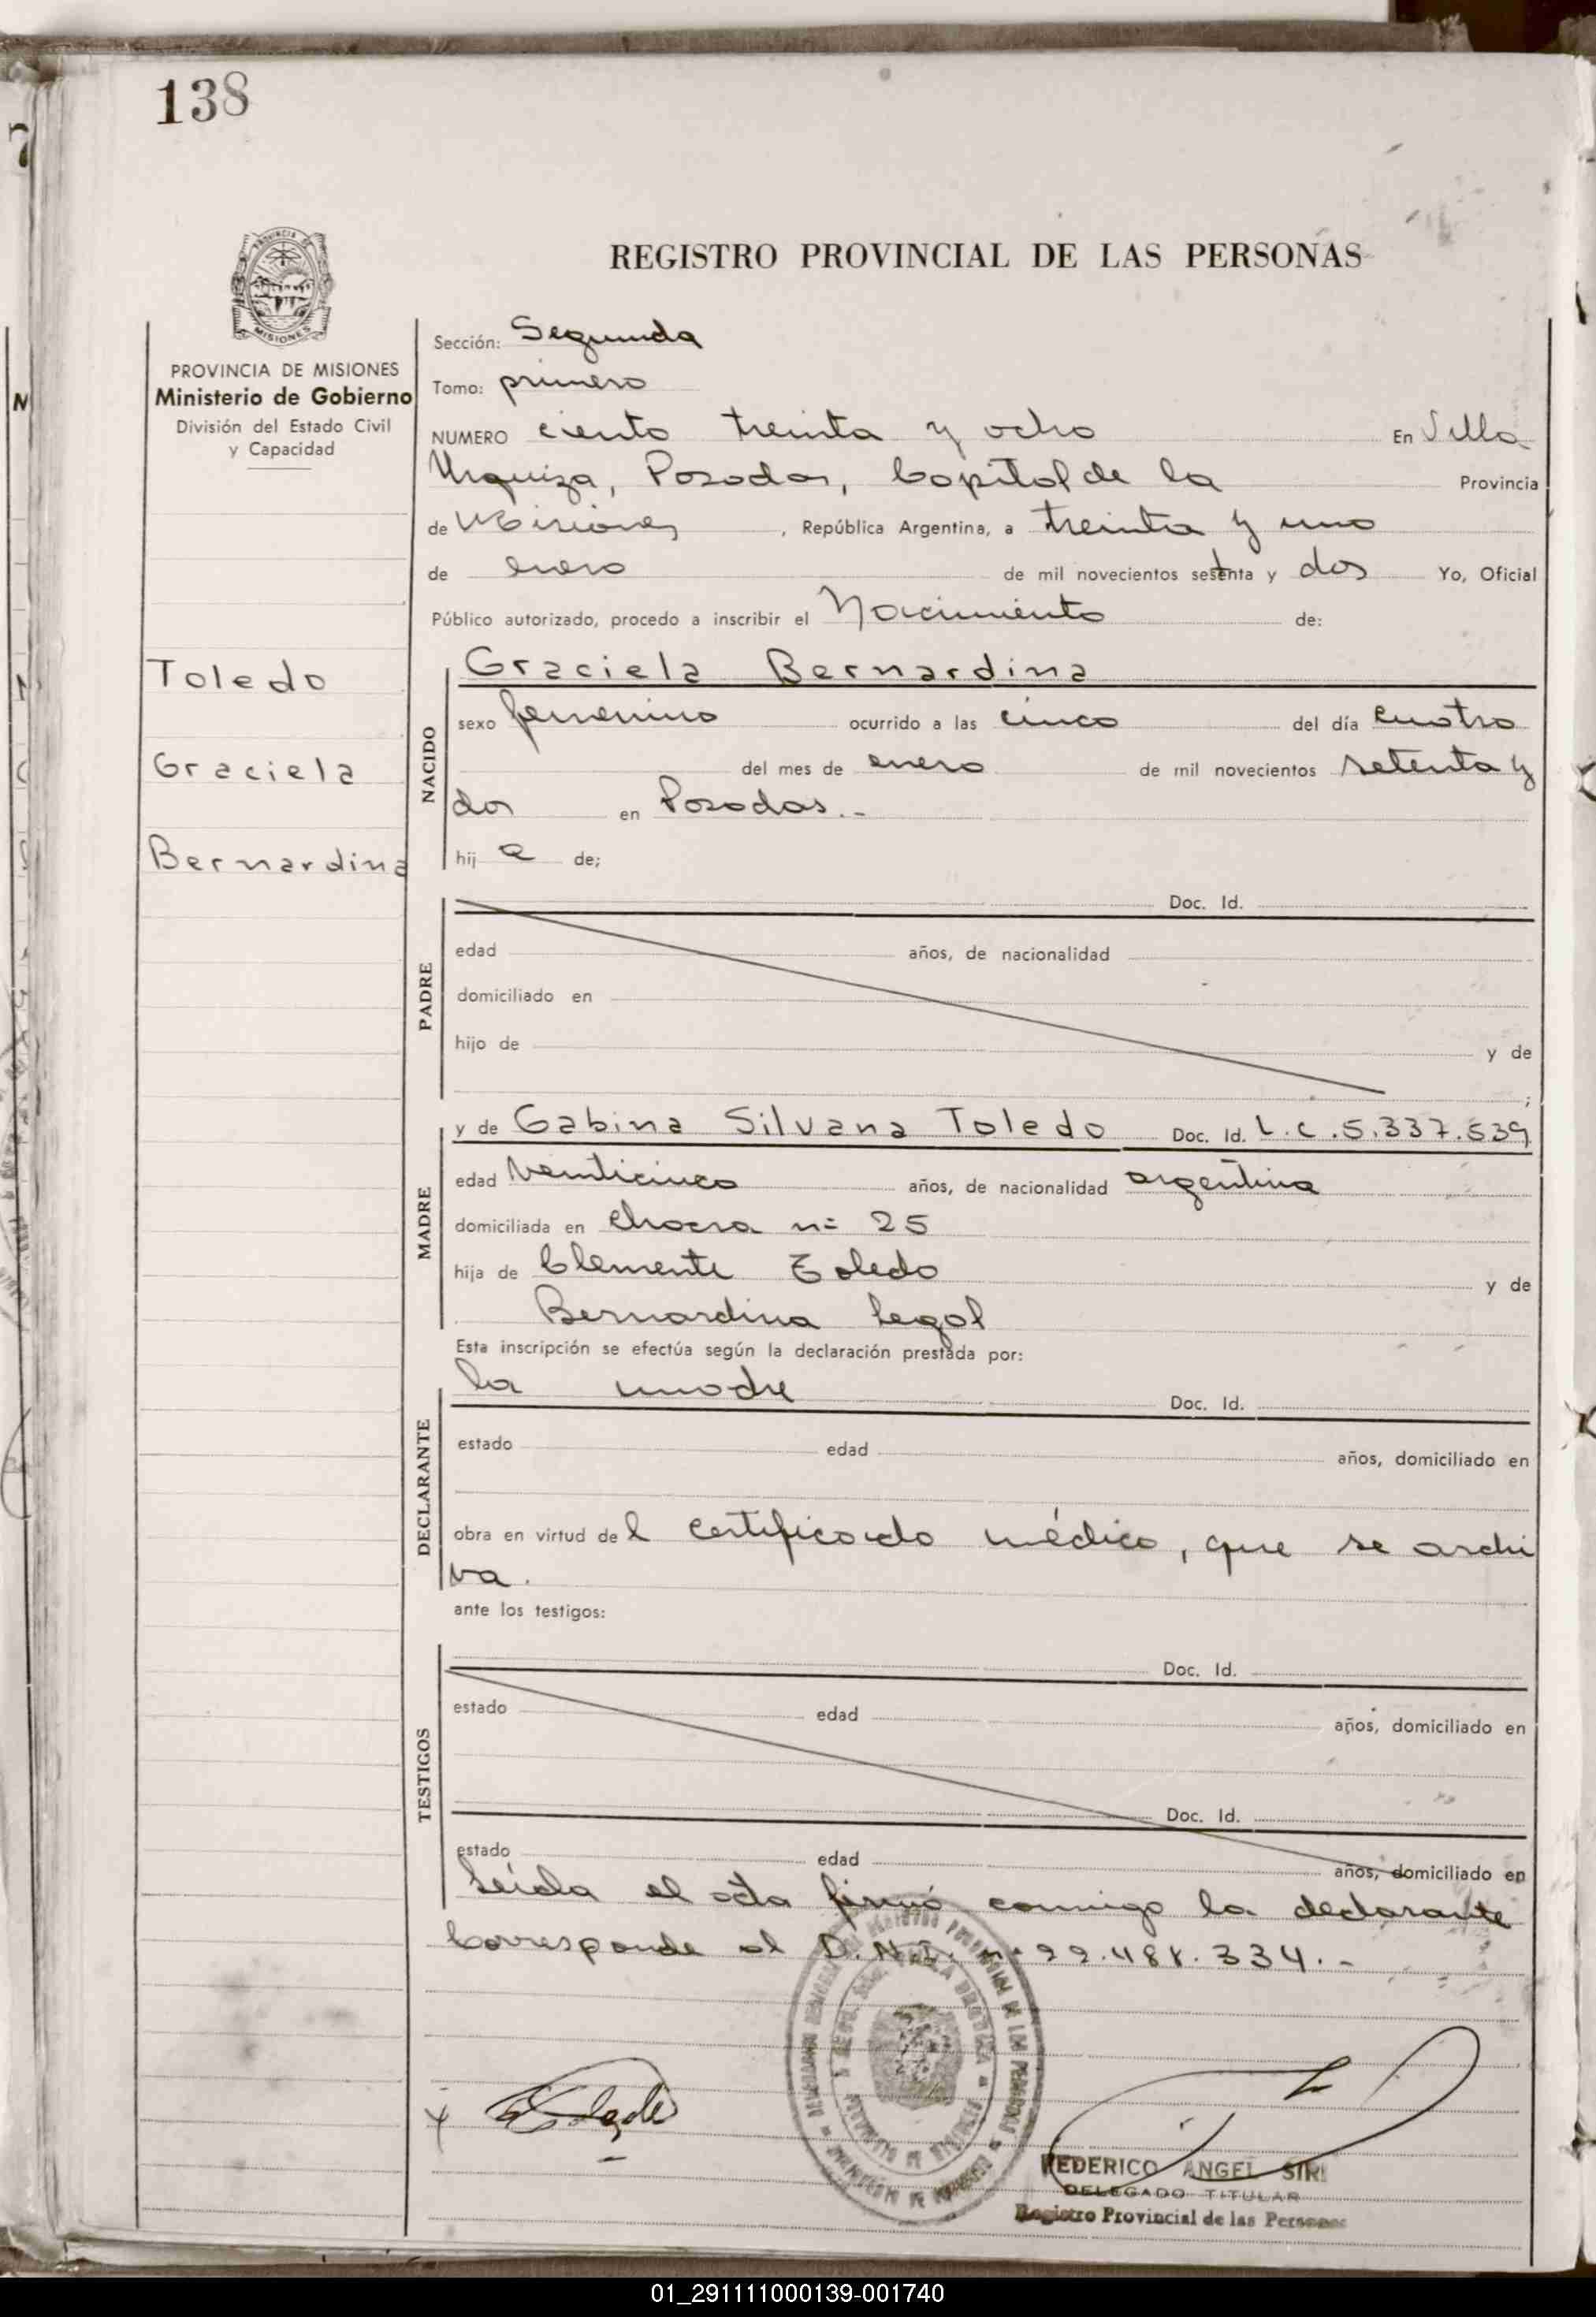 138
REGISTRO PROVINCIAL DE LAS PERSONAS
PROVINCIA DE MISIONES
Ministerio de Gobierno
División del Estado Civil
y Capacidad
Toledo
Graciela
Bernardina
Sección: Segunda
Tomo: primero
NUMERO ciento treinta y ocho En Villa
Urquiza, Posadas, Capital de la Provincia
de Misiones, República Argentina, a treinta y uno
de enero de mil novecientos setenta y dos Yo, Oficial
Público autorizado, procedo a inscribir el Nacimiento de:
NACIDO
Graciela Bernardina
sexo femenino ocurrido a las cinco del día cuatro
del mes de enero de mil novecientos setenta y
dos en Posadas.-
hij a de;
PADRE
Doc. Id.
edad años, de nacionalidad
domiciliado en
hijo de y de
;
MADRE
y de Gabina Silvana Toledo Doc. Id. L.C. 5.337.539
edad veinticinco años, de nacionalidad argentina
domiciliada en chacra n= 25
hija de Clemente Toledo y de
Bernardina Legal
Esta inscripción se efectúa según la declaración prestada por:
DECLARANTE
la madre Doc. Id.
estado edad años, domiciliado en
obra en virtud del certificado médico, que se archi
va.
ante los testigos:
TESTIGOS
Doc. Id.
estado edad años, domiciliado en
Doc. Id.
estado edad años, domiciliado en
Leída el acta firmó conmigo la declarante
Corresponde al D.N.I. 22.488.334.-
FEDERICO ANGEL SIRI
DELEGADO TITULAR
Registro Provincial de las Personas
01_291111000139-001740